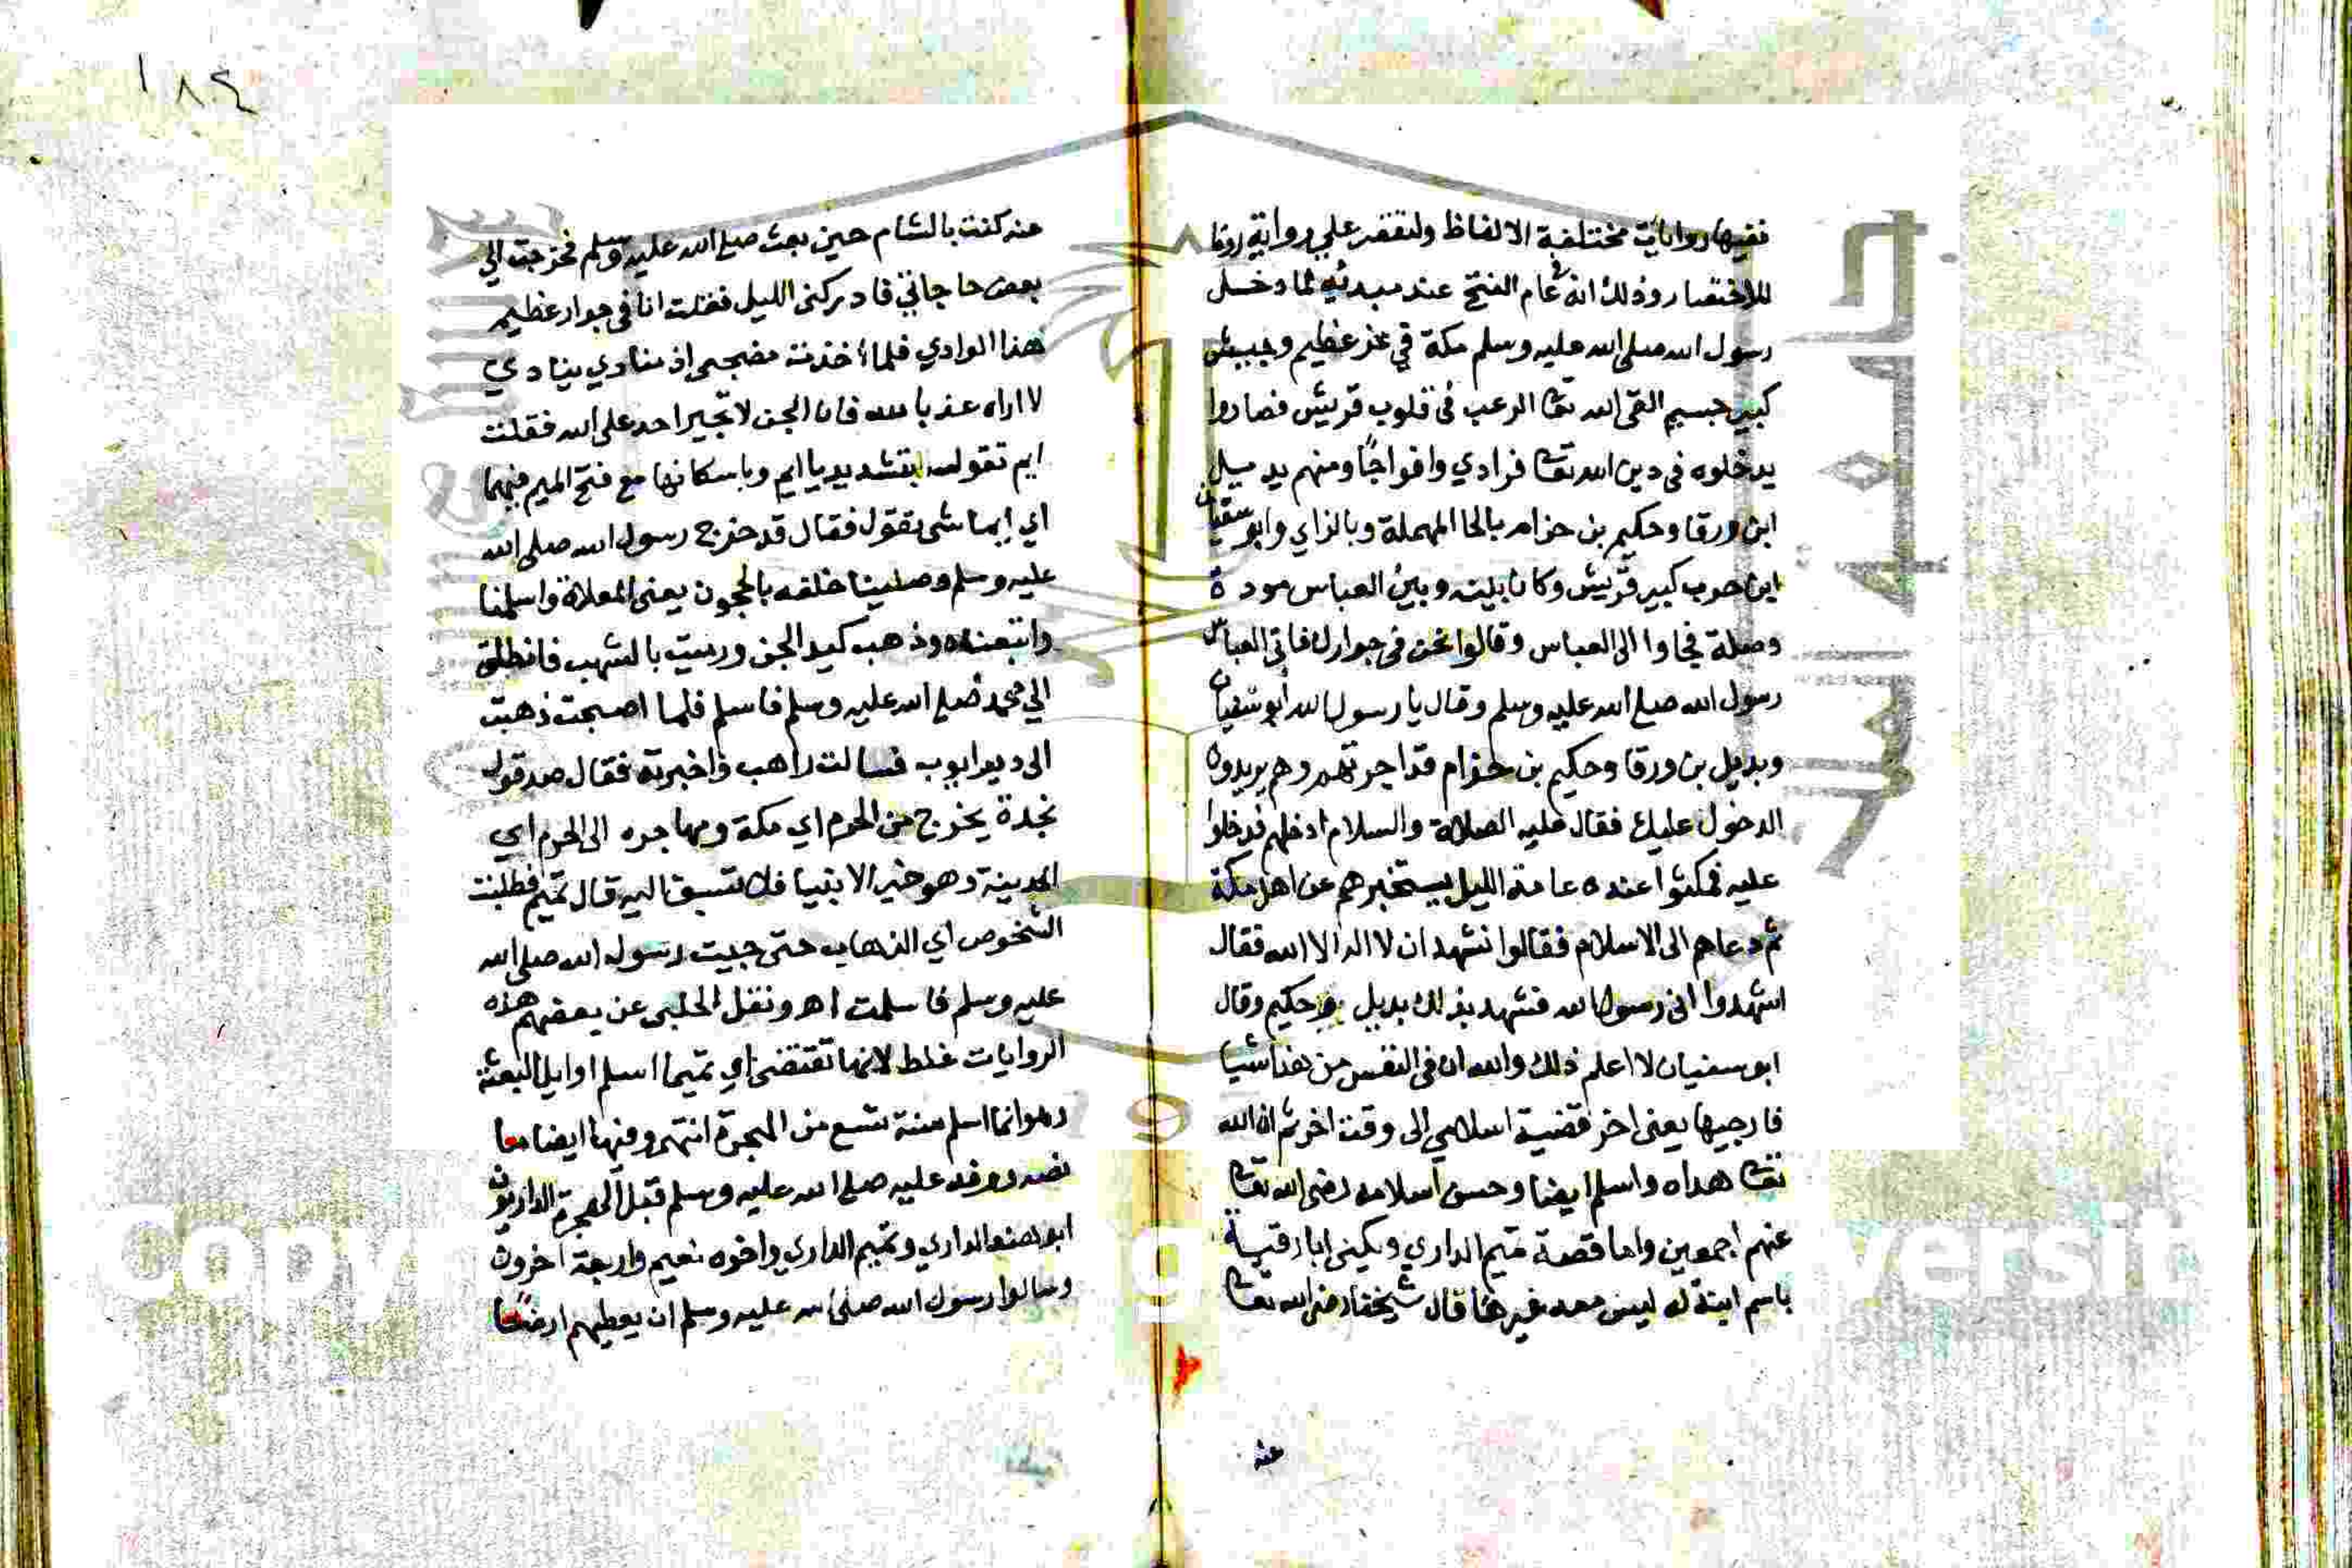 ففيها روايات مختلفة الالفاظ ولنقتصر علي رواية روما
للاختصار وذلك انه في عام الفتح عند مبدئه لما دخل
رسول الله صلى الله عليه وسلم مكة في عز عظيم وجيش
كبير جسيم القى الله تعا الرعب فى قلوب قريش فصاروا
يدخلوه فى دين الله تعا فرادي وافواجًا ومنهم بديل
ابن ورقا وحكيم بن حزام بالحا المهملة وبالزاي وابو سفيان
ابن حرب كبير قريش وكان بينه وبين العباس مودة
وصلة فجاوا الى العباس وقالوا نحن فى جوارك فاتى العباس
رسول الله صلى الله عليه وسلم وقال يا رسول الله أبو سفيان
وبديل بن ورقا وحكيم بن حزام قد اجرتهم وهم يريدوه
الدخول عليك فقال عليه الصلاة والسلام ادخلهم فدخلوا
عليه فمكثوا عنده عامة الليل يستخبرهم عن اهل مكة
ثم دعاهم الى الاسلام فقالوا نشهد ان لا اله الا الله فقال
اشهدوا انى رسول الله فشهد بذلك بديل وحكيم وقال
ابو سفيان لا اعلم ذلك والله ان فى النفس من هذا شيا
فارجيها يعنى اخر قضية اسلامي الى وقت اخر ثم ان الله
تعا هداه واسلم ايضا وحسن اسلامه رضى الله تعا
عنهم اجمعين واما قصة تميم الداري ويكنى ابا رقية
باسم ابنة له ليس معه غيرها قال شيخنا رضى الله تعا
عنه
١٨٤
عنه كنت بالشام حين بعث صلى الله عليه وسلم فخرجت الي
بعض حاجاتي فادركنى الليل فقلت انا فى جوار عظيم
هذا الوادي فلما اخذت مضجعى اذ منادي ينادي
لا اراه عذ بالله فان الجن لا تجير احد على الله فقلت
ايم تقول بتشديد يا ايم وباسكانها مع فتح الميم فيهما
اي إيما شى تقول فقال قد خرج رسول الله صلى الله
عليه وسلم وصلينا خلفه بالحجون يعنى المعلاة واسلمنا
واتبعناه وذهب كيد الجن ورميت بالشهب فانطلق
الي محمد صلى الله عليه وسلم فاسلم فلما اصبحت ذهبت
الى دير ايوب فسالت راهب واخبرته فقال صدقوك
نجدة يخرج من الحرم اي مكة ومهاجره الى الحرم اي
المدينة وهو خير الانبيا فلا تسبق اليه قال تميم فطلبت
الشخوص اي الذهاب حتى جيت رسول الله صلى الله
عليه وسلم فاسلمت اهـ ونقل الحلبى عن بعضهم هذه
الروايات غلط لانها تقتضى اي تميما اسلم اوايل البعثة
وهو انما اسلم سنة تسع من الهجرة انتهى وفيها ايضا ما
نصه ووفد عليه صلى الله عليه وسلم قبل الهجرة الداريون
ابو هند الداري وتميم الداري واخوه نعيم واربعة اخرون
وسالوا رسول الله صلى الله عليه وسلم ان يعطيهم ارضًا